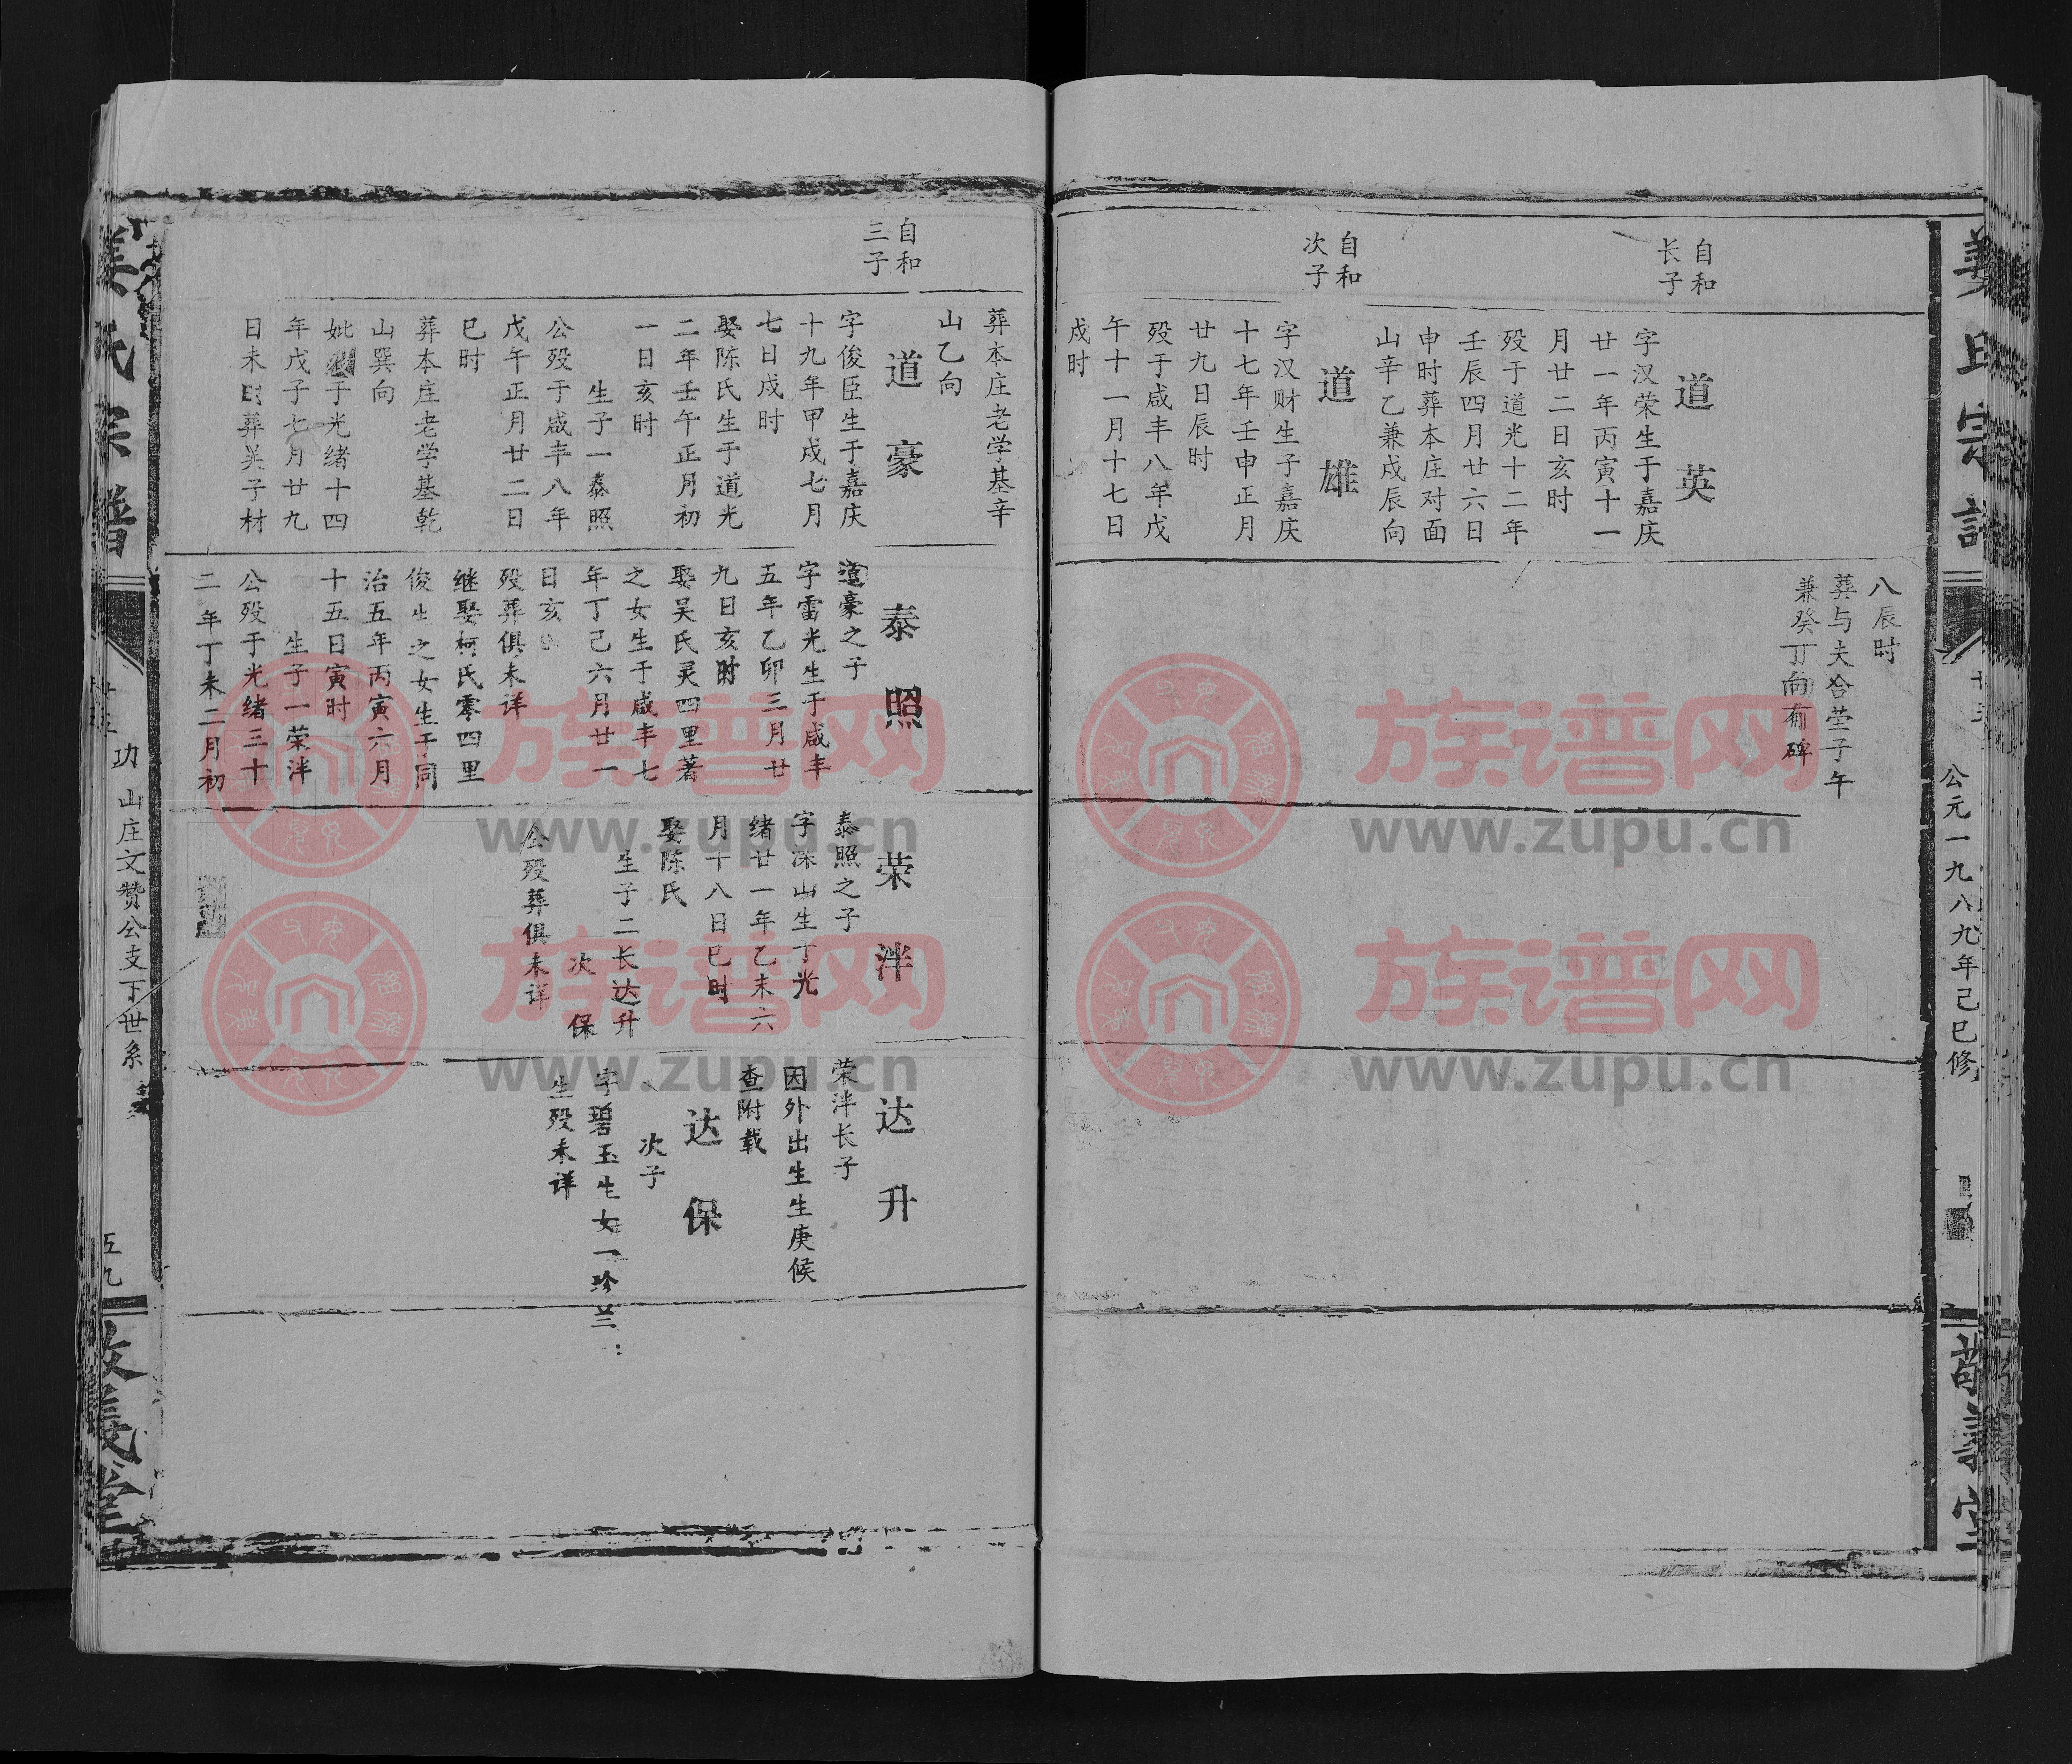 自和
长子
道英
字汉荣生于嘉庆
廿一年丙寅十一
月廿二日亥时
殁于道光十二年
壬辰四月廿六日
申时葬本庄对面
山辛乙兼戌辰向
自和
次子
道雄
字汉财生子嘉庆
十七年壬申正月
廿九日辰时
殁于咸丰八年戊
午十一月十七日
戌时
八辰时
葬与夫合茔子午
兼癸丁向有碑
公元一九八九年己巳修
葬本庄老学基辛
山乙向
自和
三子
道豪
字俊臣生于嘉庆
十九年甲戌七月
七日戌时
娶陈氏生于道光
二年壬午正月初
一日亥时
生子一泰照
公殁于咸丰八年
戊午正月廿二日
巳时
葬本庄老学基乾
山巽向
妣于光绪十四
年戊子七月廿九
日未时葬吴子材
泰照
道豪之子
字雷光生于咸丰
五年乙卯三月廿
九日亥时
娶吴氏灵四里著
之女生于咸丰七
年丁己六月廿一
日亥
殁葬俱未详
继娶柯氏零四里
俊生之女生于同
治五年丙寅六月
十五日寅时
生子一荣泮
公殁于光绪三十
二年丁未二月初
荣泮
泰照之子
字深山生丁光
绪廿一年乙未六
月十八日巳时
娶陈氏
生子二长达升
次保
公殁葬俱未详
达升
荣泮长子
因外出生生庚候
查附载
达保
次子
字碧玉生女一珍兰
生殁未详
姜氏宗谱
功山庄文赞公支下世系
五九
敬义堂
族谱网
www.zupu.cn
族谱网
www.zupu.cn
族谱网
www.zupu.cn
族谱网
www.zupu.cn